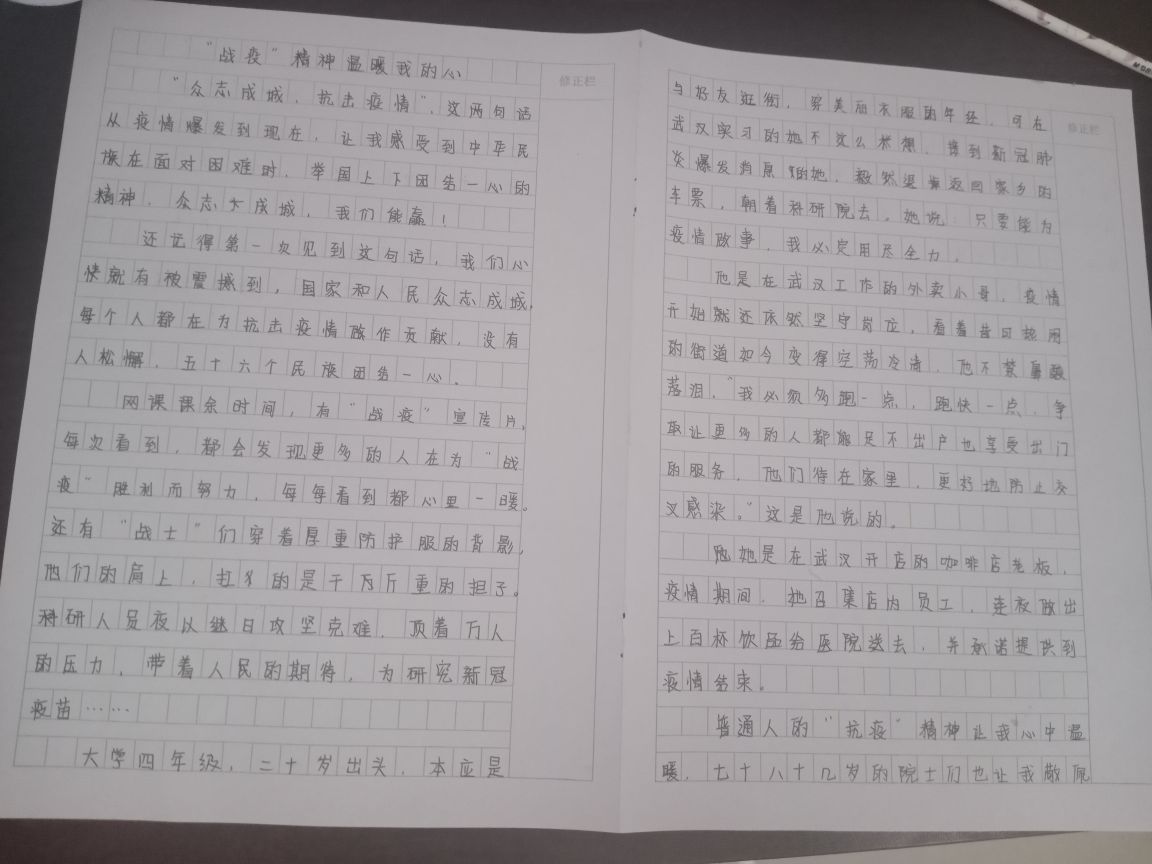 “战疫”精神温暖我的心
修正栏
“众志成城，抗击疫情”，这两句话
从疫情爆发到现在，让我感受到中华民
族在面对困难时，举国上下团结一心的
精神，众志成城，我们能赢！
还记得第一次见到这句话，我们心
情就有被震撼到，国家和人民众志成城，
每个人都在为抗击疫情做作贡献，没有
人松懈，五十六个民族团结一心。
网课课余时间，有“战疫”宣传片，
每次看到，都会发现更多的人在为“战
疫”胜利而努力，每每看到都心里一暖。
还有“战士”们穿着厚重防护服的背影，
他们的肩上，扛的是千万斤重的担子。
科研人员夜以继日攻坚克难，顶着万人
的压力，带着人民的期待，为研究新冠
疫苗……
大学四年级，二十岁出头，本应是
与好友逛街，穿美丽衣服的年轻，可在
修正栏
武汉实习的她不这么想，接到新冠肺
炎爆发消息的她，毅然退掉返回家乡的
车票，朝着科研院去。她说：只要能为
疫情做事，我必定用尽全力。
他是在武汉工作的外卖小哥，疫情
开始就还依然坚守岗位，看着昔日热闹
的街道如今变得空荡冷清，他不禁鼻酸
落泪，“我必须多跑一点，跑快一点，争
取让更多的人都能足不出户也享受出门
的服务，他们待在家里，更好地防止交
叉感染。”这是他说的。
她是在武汉开店的咖啡店老板，
疫情期间，她召集店内员工，连夜做出
上百杯饮品给医院送去，并承诺提供到
疫情结束。
普通人的“抗疫”精神让我心中温
暖，七十八十几岁的院士们也让我敬佩